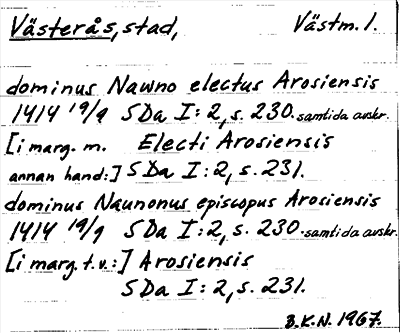 Västerås, stad, Västm. l.
dominus Nawno electus Arosiensis
1414 19/9 SDa I:2, s. 230. samtida avskr.
[i marg. m. Electi Arosiensis
annan hand:] SDa I:2, s. 231.
dominus Naunonus episcopus Arosiensis
1414 19/9 SDa I:2, s. 230. samtida avskr.
[i marg. t.v.:] Arosiensis
SDa I:2, s. 231.
B.K.N. 1967.